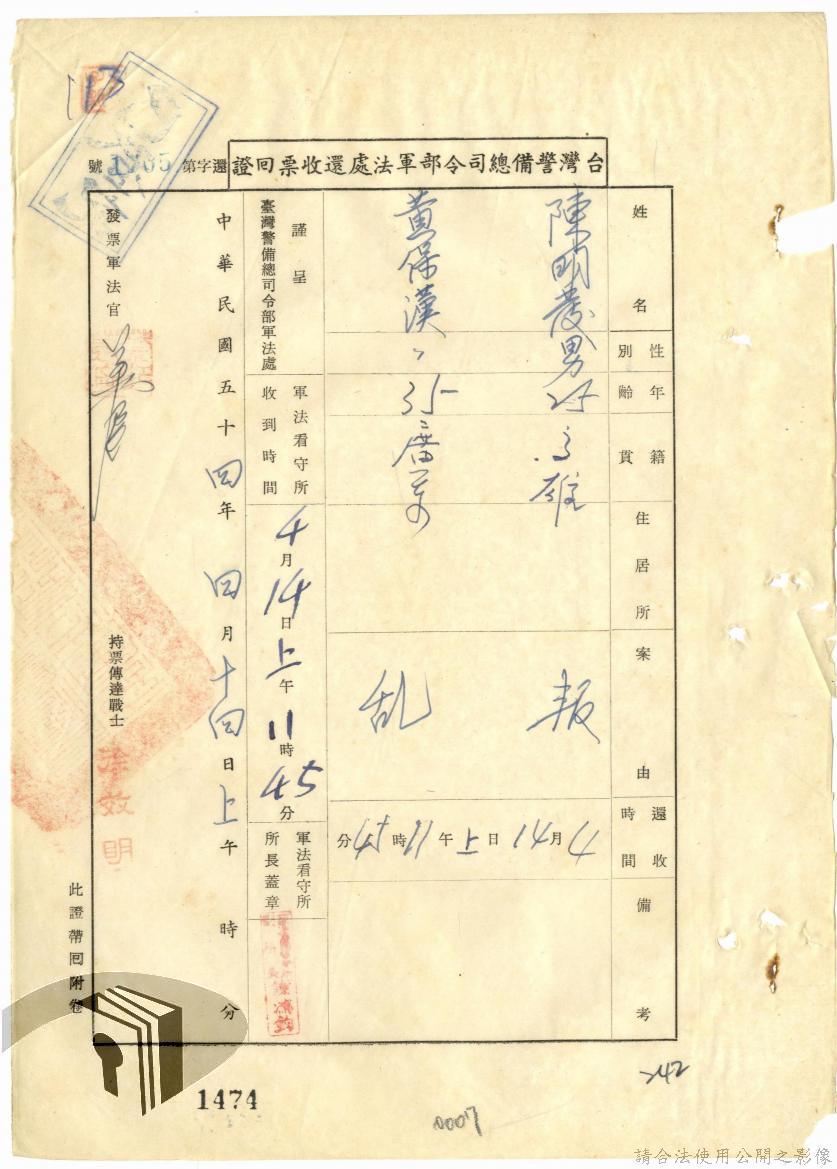 台灣警備總司令部軍法處還收票回證
還字第1305號
姓名
性別
年齡
籍貫
住居所
案由
還收時間
備考
陳明發 男 25 高雄
黃保漢 〃 35 廣東
叛
乱
4月14日上午11時45分
謹呈
臺灣警備總司令部軍法處
軍法看守所收到時間
4月14日上午11時45分
軍法看守所所長蓋章
中華民國五十四年四月十四日上午時分
發票軍法官
持票傳達戰士
此證帶回附卷
1474
0007
242
請合法使用公開之影像